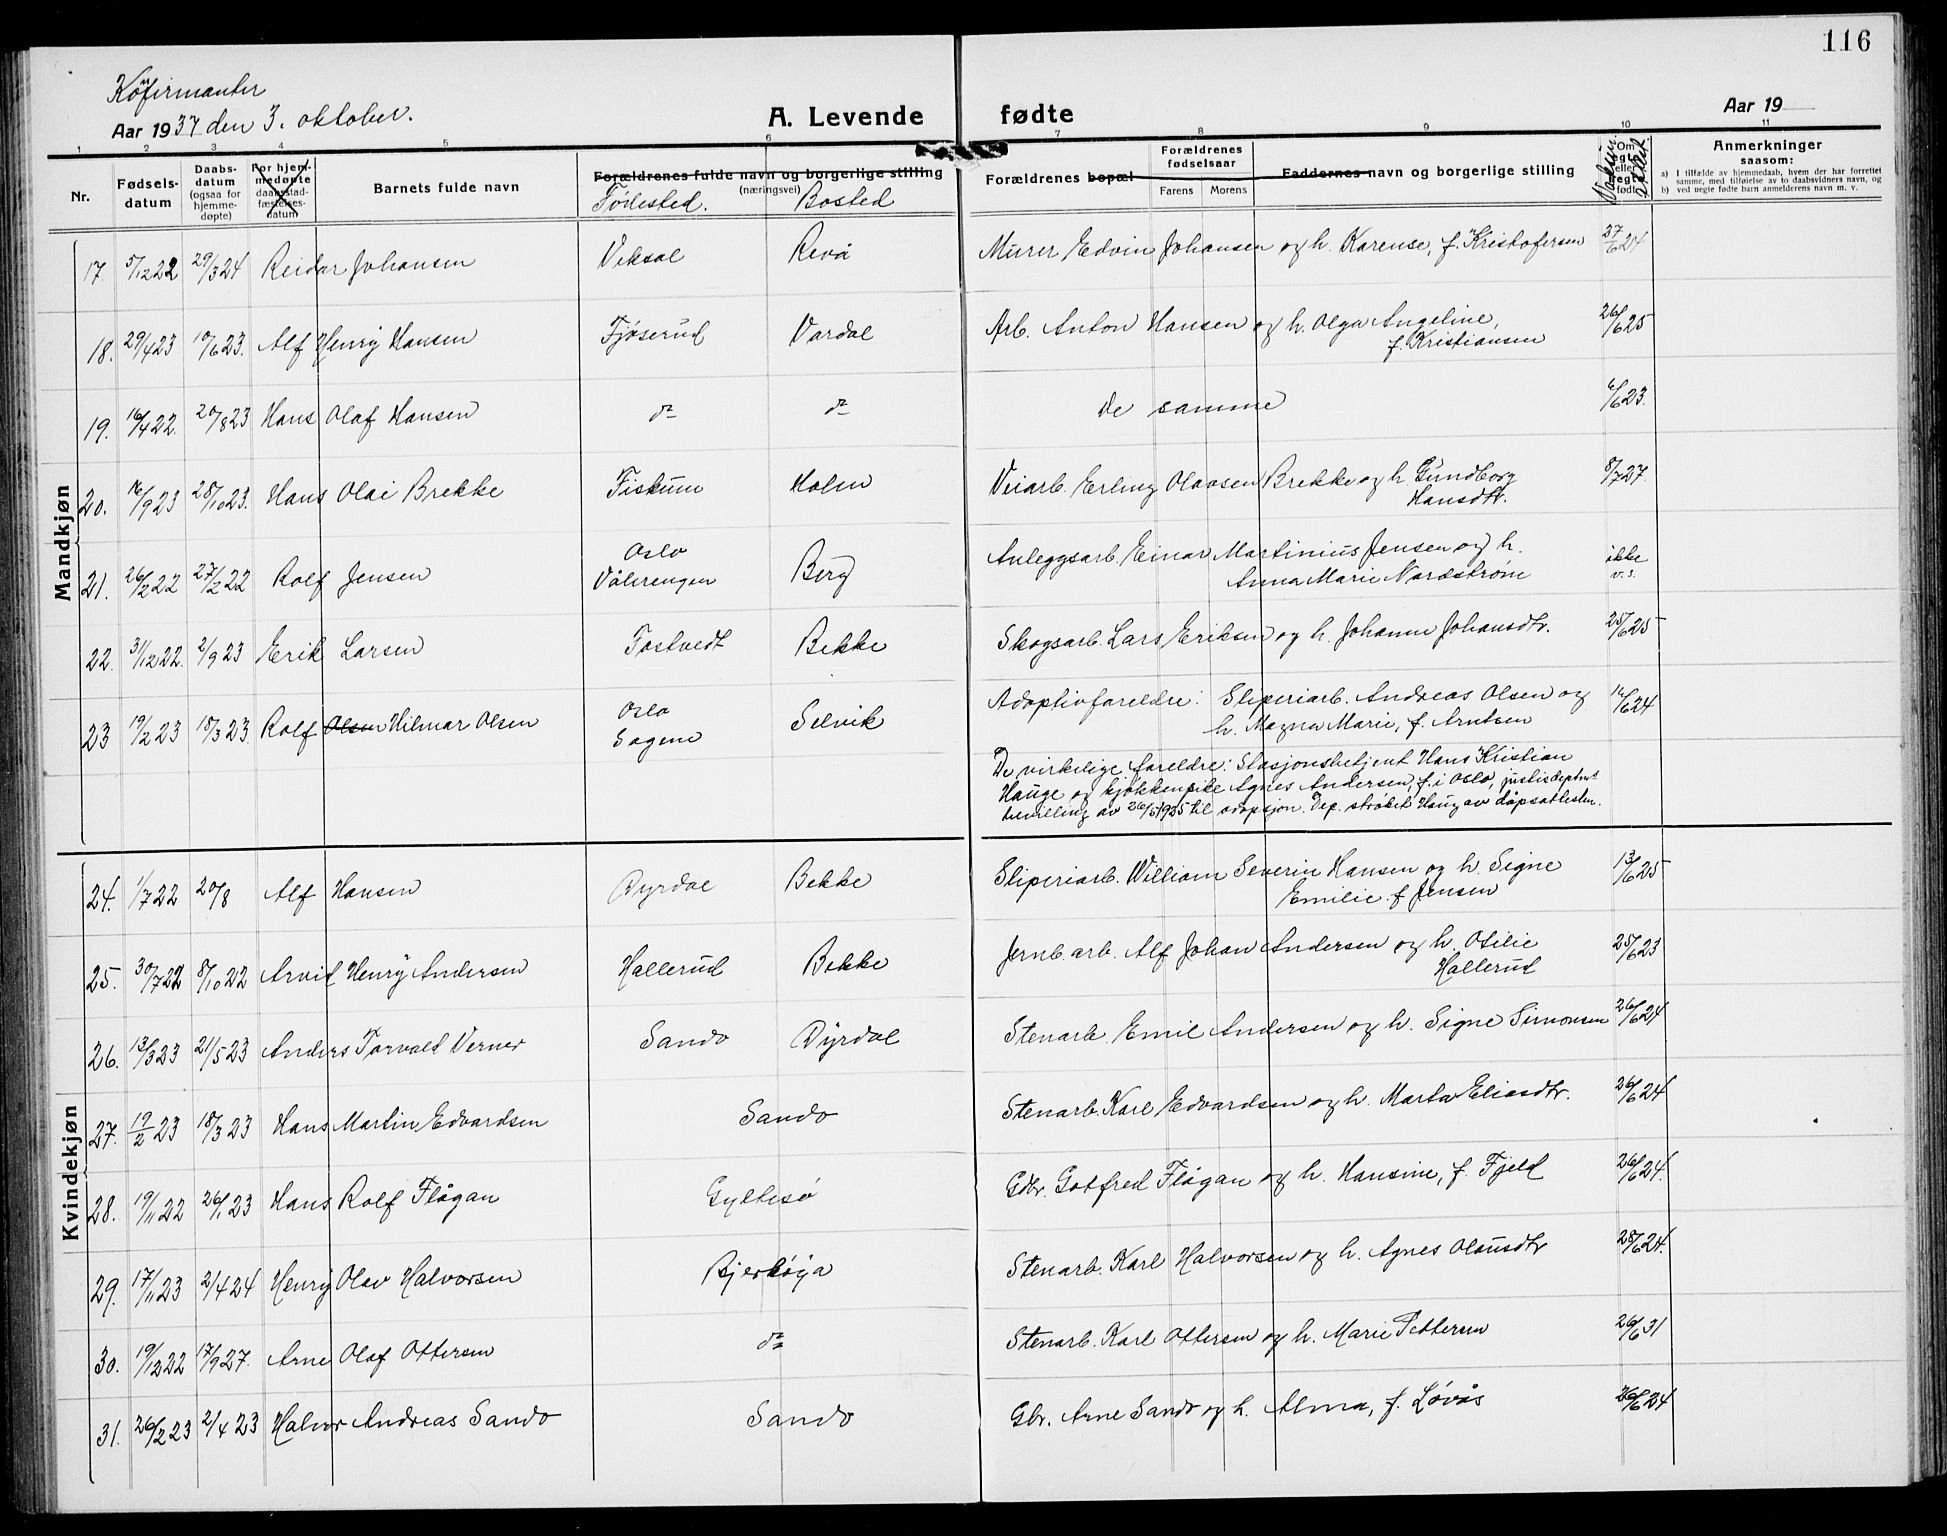 116
Konfirmanter
Aar 1937 den 3. oktober.
A. Levende fødte
Aar 19
1 2 3 4 5 6 7 8 9 10 11
Nr.
Fødsels-
datum
Daabs-
datum
(ogsaa for
hjemme-
døpte)
For hjem-
medøpte
daabsstad-
fæstelses-
datum
Barnets fulde navn
Forældrenes fulde navn og borgerlige stilling
(næringsvei)
Fødested. Bosted
Forældrenes bopæl
Forældrenes
fødselsaar
Farens Morens
Faddernes navn og borgerlige stilling
Om
egte
eller
uegte
født
Anmerkninger
saasom:
a) I tilfælde av hjemmedaab, hvem der har forrettet
samme, med tilføielse av to daabsvidners navn, og
b) ved uegte fødte barn anmelderens navn m. v.
Mandkjøn
17. 5/12 22 29/3 24 Reidar Johansen Viksal Revå Murer Edvin Johansen og h. Karense, f. Kristofersen 27/6 24
18. 29/4 23 10/6 23. Alf Henry Hansen Fjøserud Vardal Arb. Anton Hansen og h. Olga Angeline,
f. Kristiansen 26/6 25
19. 16/4 22. 20/8 23 Hans Olaf Hansen do do De samme 6/6 23.
20. 16/9 23 28/10 23. Hans Olai Brekke Fiskum Holm Veiarb. Erling Olavsen Brekke og h. Gundborg
Hansdtr. 8/7 27.
21. 26/2 22 27/2 22 Rolf Jensen Oslo
Vålerengen Berg Anleggsarb. Einar Martinius Jensen og h.
Anna Marie Nordstrøm ikke
v. s.
22. 31/12 22. 2/9 23 Erik Larsen Fostvedt Bekke Skogsarb. Lars Eriksen og h. Johanne Johansdtr. 25/6 25
23 19/2 23 18/3 23 Rolf Olsen Hilmar Olsen Oslo
Sagene Selvik Adoptivforeldre: Sliperiarb. Andreas Olsen og
h. Magna Marie, f. Arntsen 16/6 24
De virkelige foreldre: Stasjonsbetjent Hans Kristian
Hauge og kjøkkenpike Agnes Andersen, f. i Oslo, justisdeptmt
bevilling av 26/5 1925 til adopsjon. Dep. strøket Haug av dåpsattesten.
Kvindekjøn
24. 1/7 22 20/8 Alf Hansen Dyrdal Bekke Sliperiarb. William Severin Hansen og h. Signe
Emilie f Jensen 13/6 25
25. 30/7 22 8/10 22 Arvid Henry Andersen Hallerud Bekke Jernb. arb. Alf Johan Andersen og h. Otilie
Hallerud 25/6 23
26. 13/3 23 21/5 23 Anders Torvald Verner Sando Dyrdal Stenarb. Emil Andersen og h. Signe Simonsen 26/6 24
27. 19/2 23 18/3 23 Hans Martin Edvardsen Sando Stenarb. Karl Edvardsen og h. Marta Eliasdtr. 26/6 24
28. 19/11 22 26/1 23 Hans Rolf Flågan Gyltesø Gdbr. Gotfred Flågan og h. Hansine, f. Fjeld 26/6 24.
29. 17/11 23 21/4 24 Henry Olav Halvorsen Bjerkøya Stenarb. Karl Halvorsen og h. Agnes Olausdtr 28/6 24.
30. 19/12 22 17/9 27. Arne Olaf Ottersen do Stenarb. Karl Ottersen og h. Marie Pettersen 26/6 31
31. 26/2 23 2/4 23 Halvor Andreas Sando Sando Gbr. Arne Sando og h. Alma, f. Løvås 26/6 24